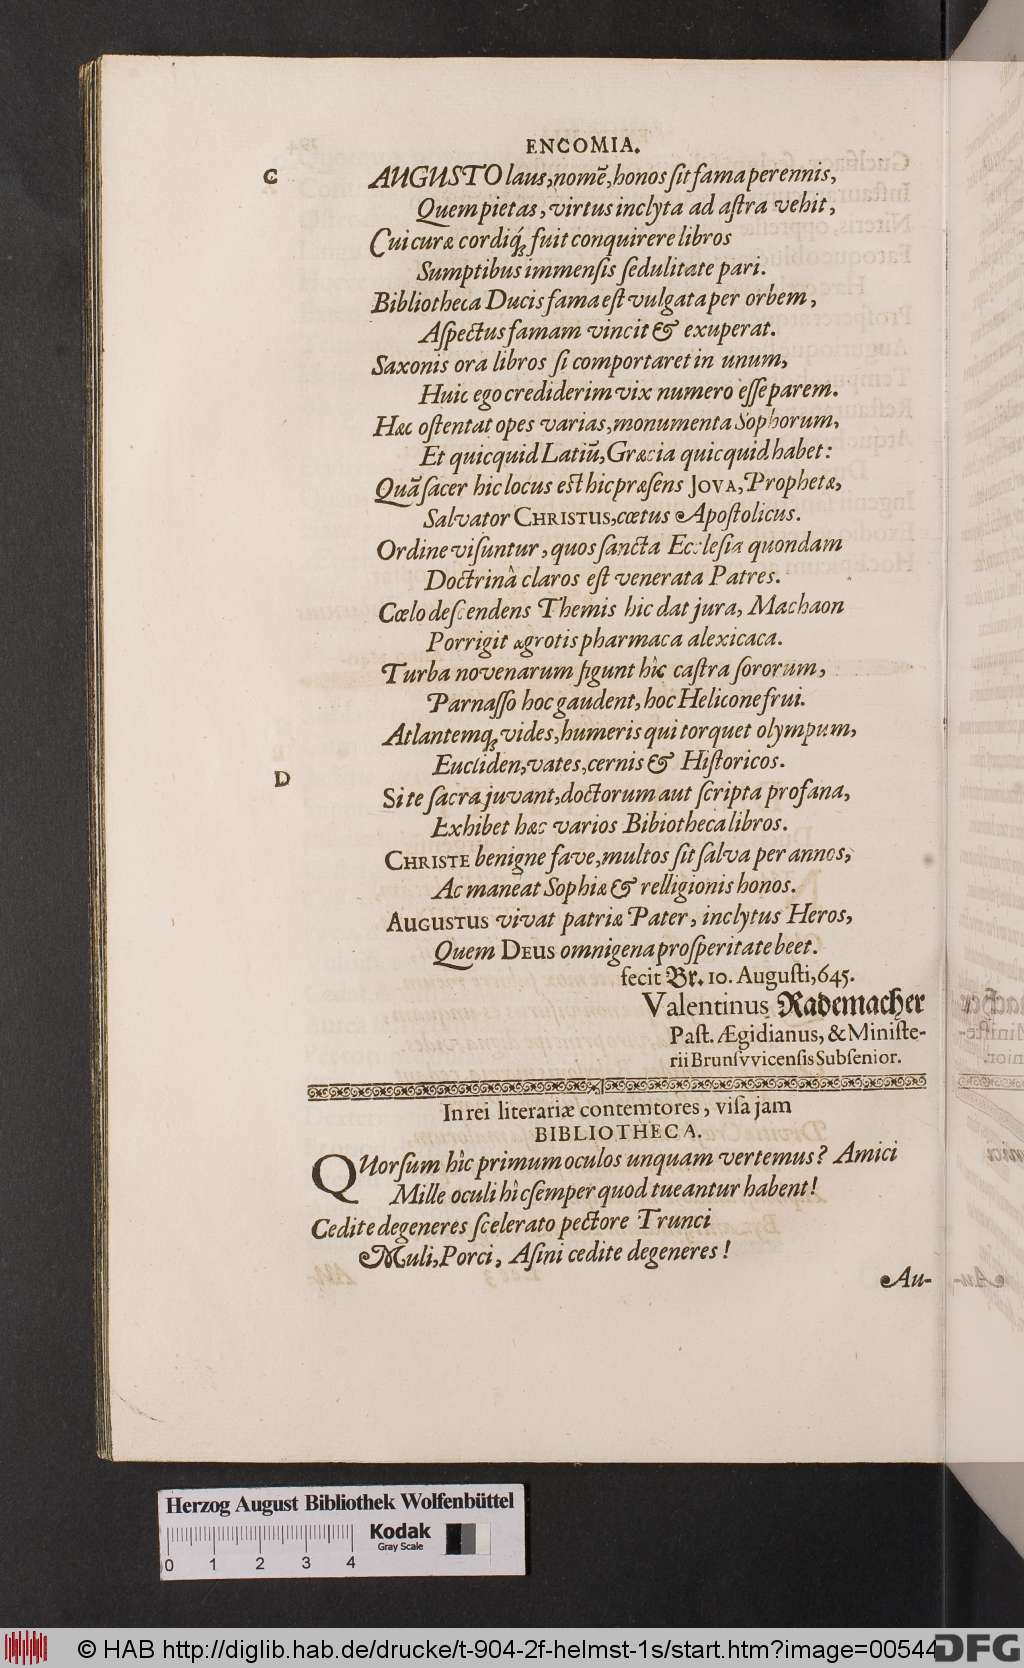 ENCOMIA.
C
AUGUSTO laus, nomē, honos ſit fama perennis,
Quem pietas, virtus inclyta ad aſtra vehit,
Cui curæ cordiq́; fuit conquirere libros
Sumptibus immenſis ſedulitate pari.
Bibliotheca Ducis fama eſt vulgata per orbem,
Aſpectus famam vincit & exuperat.
Saxonis ora libros ſi comportaret in unum,
Huic ego crediderim vix numero eſſe parem.
Hæc oſtentat opes varias, monumenta Sophorum,
Et quicquid Latiū, Græcia quicquid habet:
Quā ſacer hic locus eſt hic præſens JOVA, Prophetæ,
Salvator CHRISTUS, cœtus Apoſtolicus.
Ordine viſuntur, quos ſancta Eccleſia quondam
Doctrinâ claros eſt venerata Patres.
Cœlo deſcendens Themis hic dat jura, Machaon
Porrigit ægrotis pharmaca alexicaca.
Turba novenarum figunt hîc caſtra ſororum,
Parnaſſo hoc gaudent, hoc Helicone frui.
Atlantemq; vides, humeris qui torquet olympum,
Eucliden, vates, cernis & Hiſtoricos.
D
Si te ſacra juvant, doctorum aut ſcripta profana,
Exhibet hæc varios Bibiotheca libros.
CHRISTE benigne fave, multos ſit ſalva per annos,
Ac maneat Sophiæ & relligionis honos.
AUGUSTUS vivat patriæ Pater, inclytus Heros,
Quem DEUS omnigena proſperitate beet.
fecit Br. 10. Auguſti, 645.
Valentinus Rademacher
Paſt. Ægidianus, & Miniſte-
rii Brunſvvicenſis Subſenior.
In rei literariæ contemtores, viſa jam
BIBLIOTHECA.
QUorſum hîc primum oculos unquam vertemus? Amici
Mille oculi hîc ſemper quod tueantur habent!
Cedite degeneres ſcelerato pectore Trunci
Muli, Porci, Aſini cedite degeneres!
Au-
Herzog August Bibliothek Wolfenbüttel
Kodak
Gray Scale
0 1 2 3 4
© HAB http://diglib.hab.de/drucke/t-904-2f-helmst-1s/start.htm?image=00544
DFG